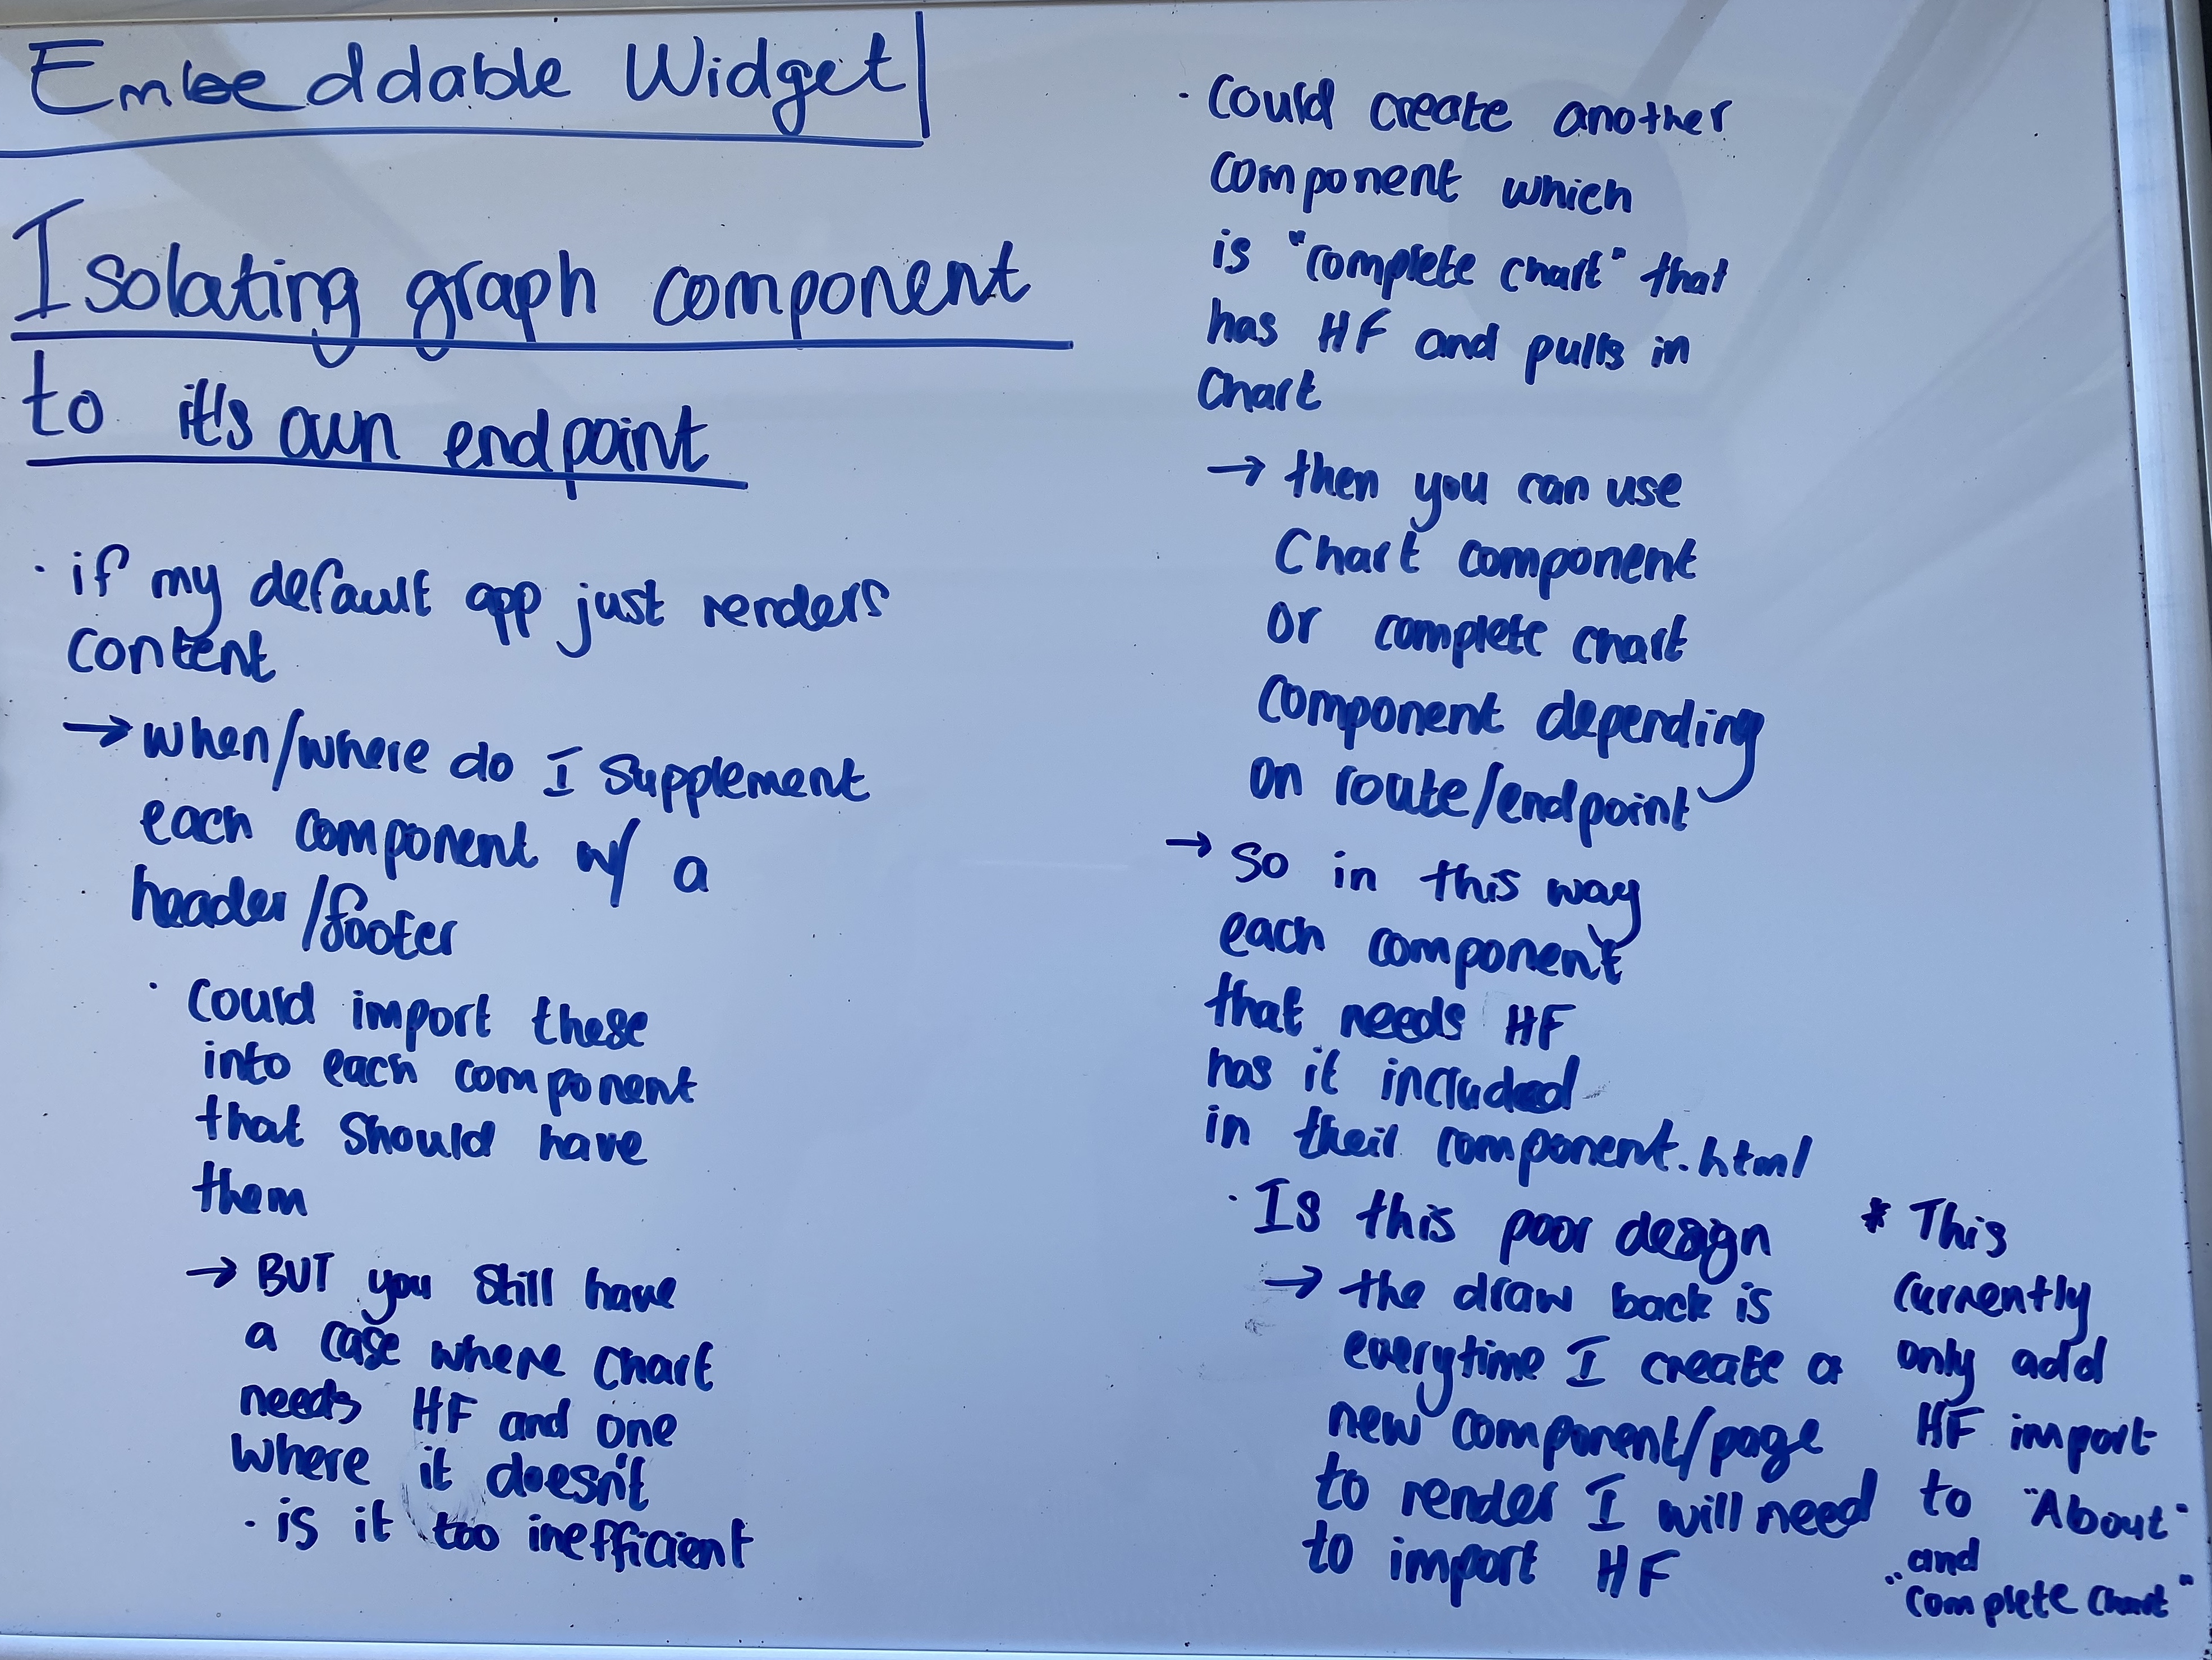 Embeddable Widget
Isolating graph component
to it's own endpoint
· if my default app just renders
content
→ when/where do I supplement
each component w/ a
header/footer
· could import these
into each component
that should have
them
→ BUT you still have
a case where chart
needs HF and one
where it doesn't
· is it too inefficient
· Could create another
component which
is "complete chart" that
has HF and pulls in
Chart
→ then you can use
Chart component
or complete chart
component depending
on route/endpoint
→ So in this way
each component
that needs HF
has it included
in their component.html
· Is this poor design
→ the draw back is
everytime I create a
new component/page
to render I will need
to import HF
* This
currently
only add
HF import
to "About"
and
"Complete Chart"